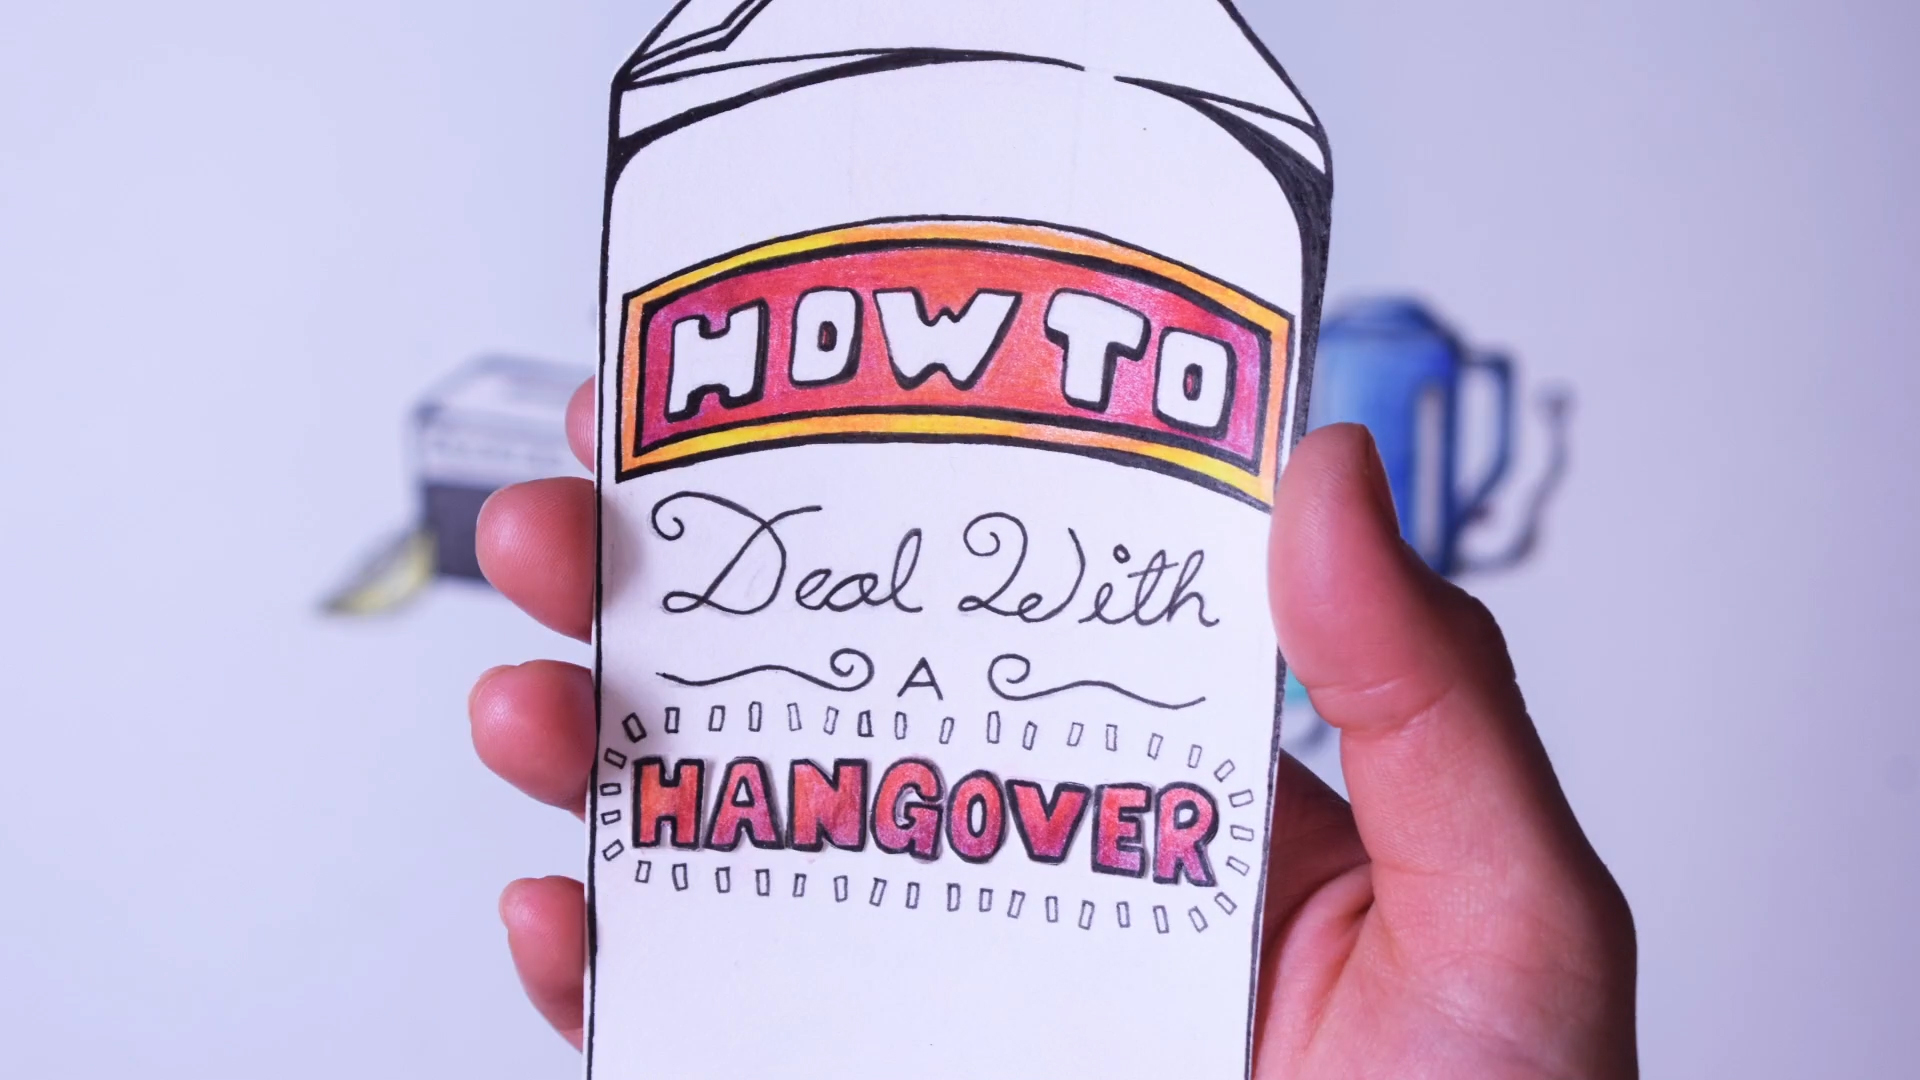 HOW TO
Deal With
A
HANGOVER